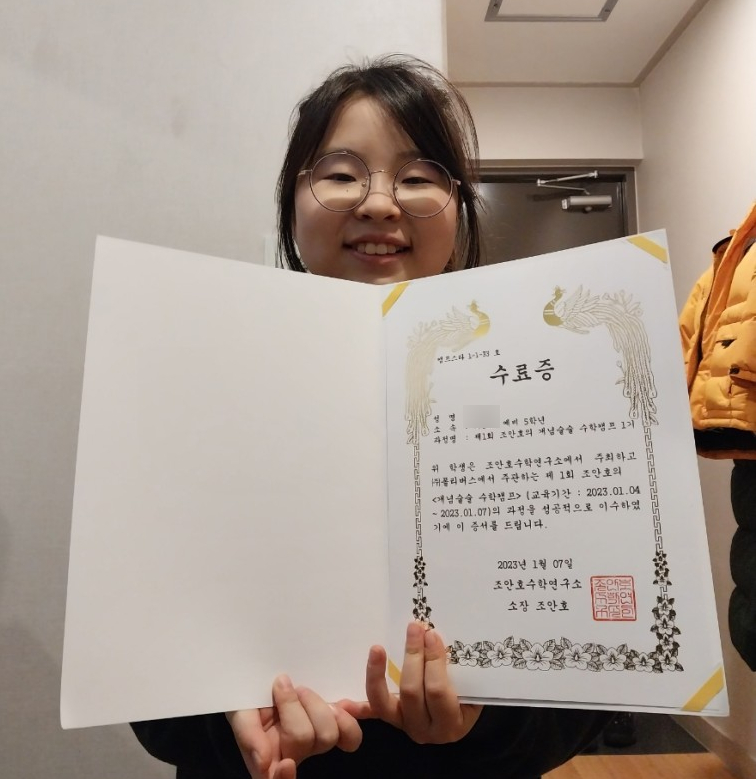 캠프스타 1-1-33 호
수료증
성 명
소 속 : 예비 5학년
과정명 : 제1회 조안호의 개념술술 수학캠프 1기
위 학생은 조안호수학연구소에서 주최하고
㈜폴리버스에서 주관하는 제 1회 조안호의
<개념술술 수학캠프> (교육기간 : 2023.01.04
~ 2023.01.07)의 과정을 성공적으로 이수하였
기에 이 증서를 드립니다.
2023년 1월 07일
조안호수학연구소
소장 조안호